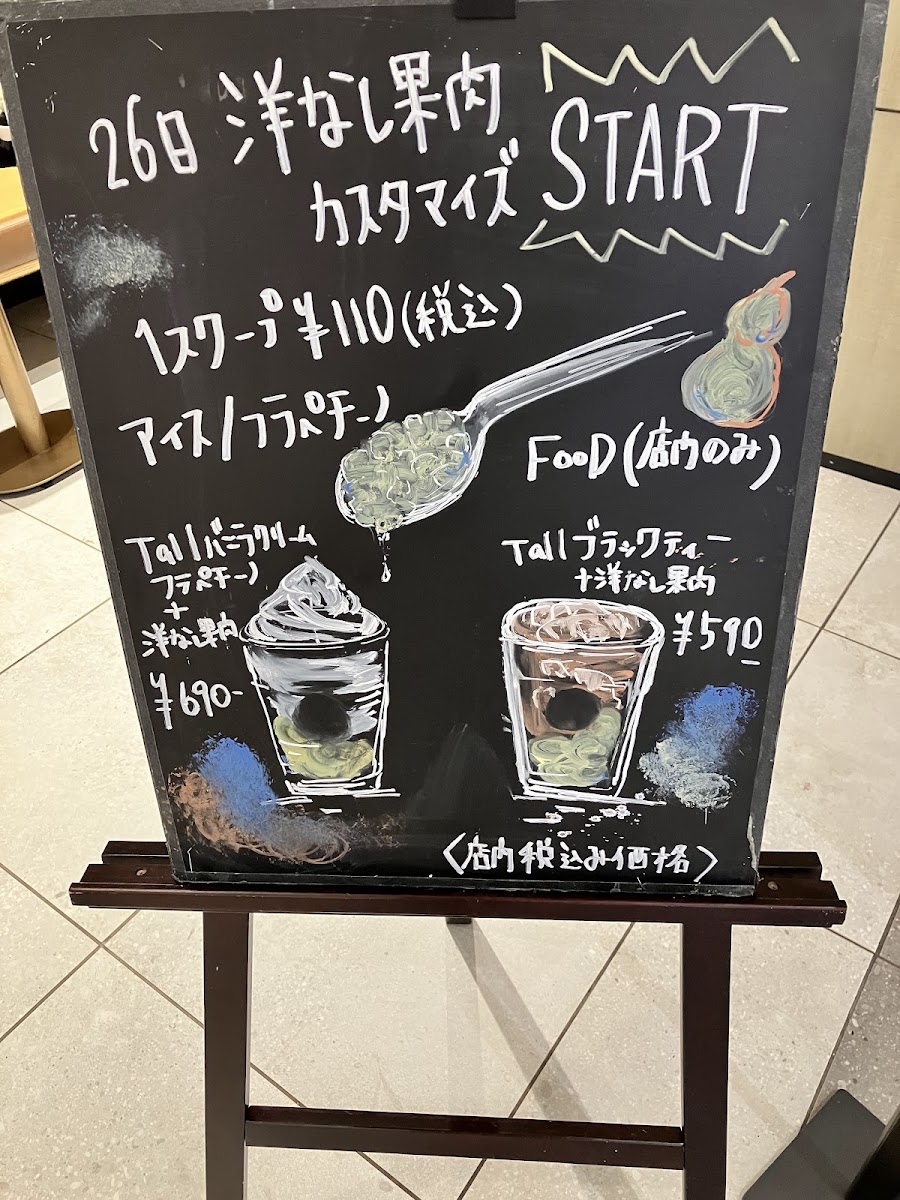 26日 洋なし果肉
カスタマイズ START
1スクープ¥110(税込)
アイス/フラペチーノ
FOOD(店内のみ)
Tallバニラクリーム
フラペチーノ
+
洋なし果肉
¥690-
Tallブラックティー
+洋なし果肉
¥590
<店内税込み価格>